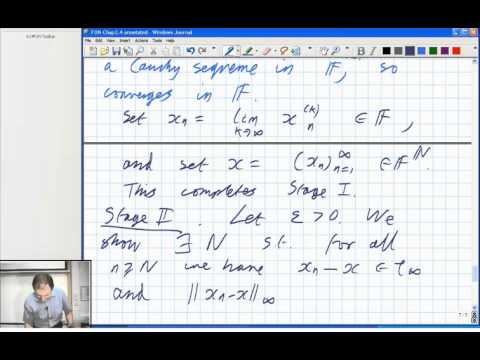 FUN Chap 1-4 annotated - Windows Journal
a Cauchy sequence in 𝔽, so
converges in 𝔽.
Set xₙ = lim k→∞ xₙ⁽ᵏ⁾ ∈ 𝔽,
and set x = (xₙ)ₙ₌₁^∞ ∈ 𝔽^ℕ.
This completes Stage I.
Stage II. Let ε > 0. We
show ∃ N st. for all
n ≥ N we have xₙ − x ∈ ℓ∞
and ‖xₙ−x‖∞